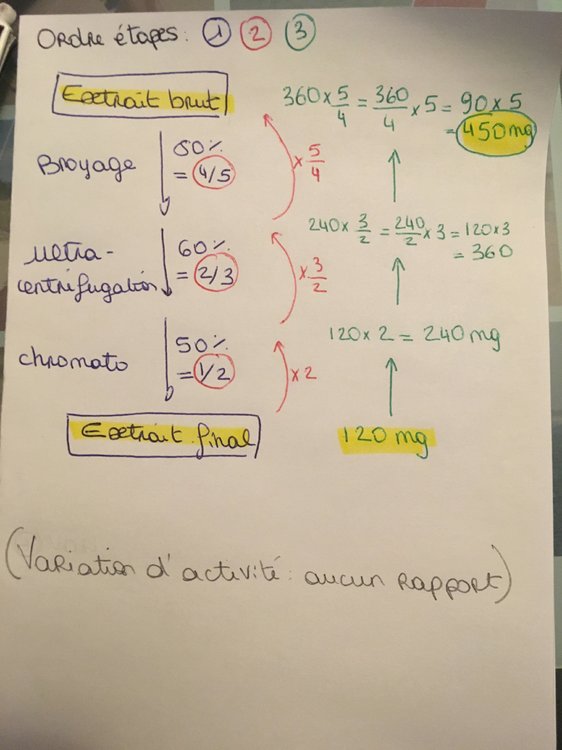 Ordre étapes : 1 2 3
Extrait brut
360 × 5/4 = 360/4 × 5 = 90 × 5
= 450 mg
Broyage
80%
= 4/5
× 5/4
240 × 3/2 = 240/2 × 3 = 120 × 3
= 360
Ultra-
centrifugation
60%
= 2/3
× 3/2
120 × 2 = 240 mg
chromato
50%
= 1/2
× 2
Extrait final
120 mg
(Variation d'activité : aucun rapport)